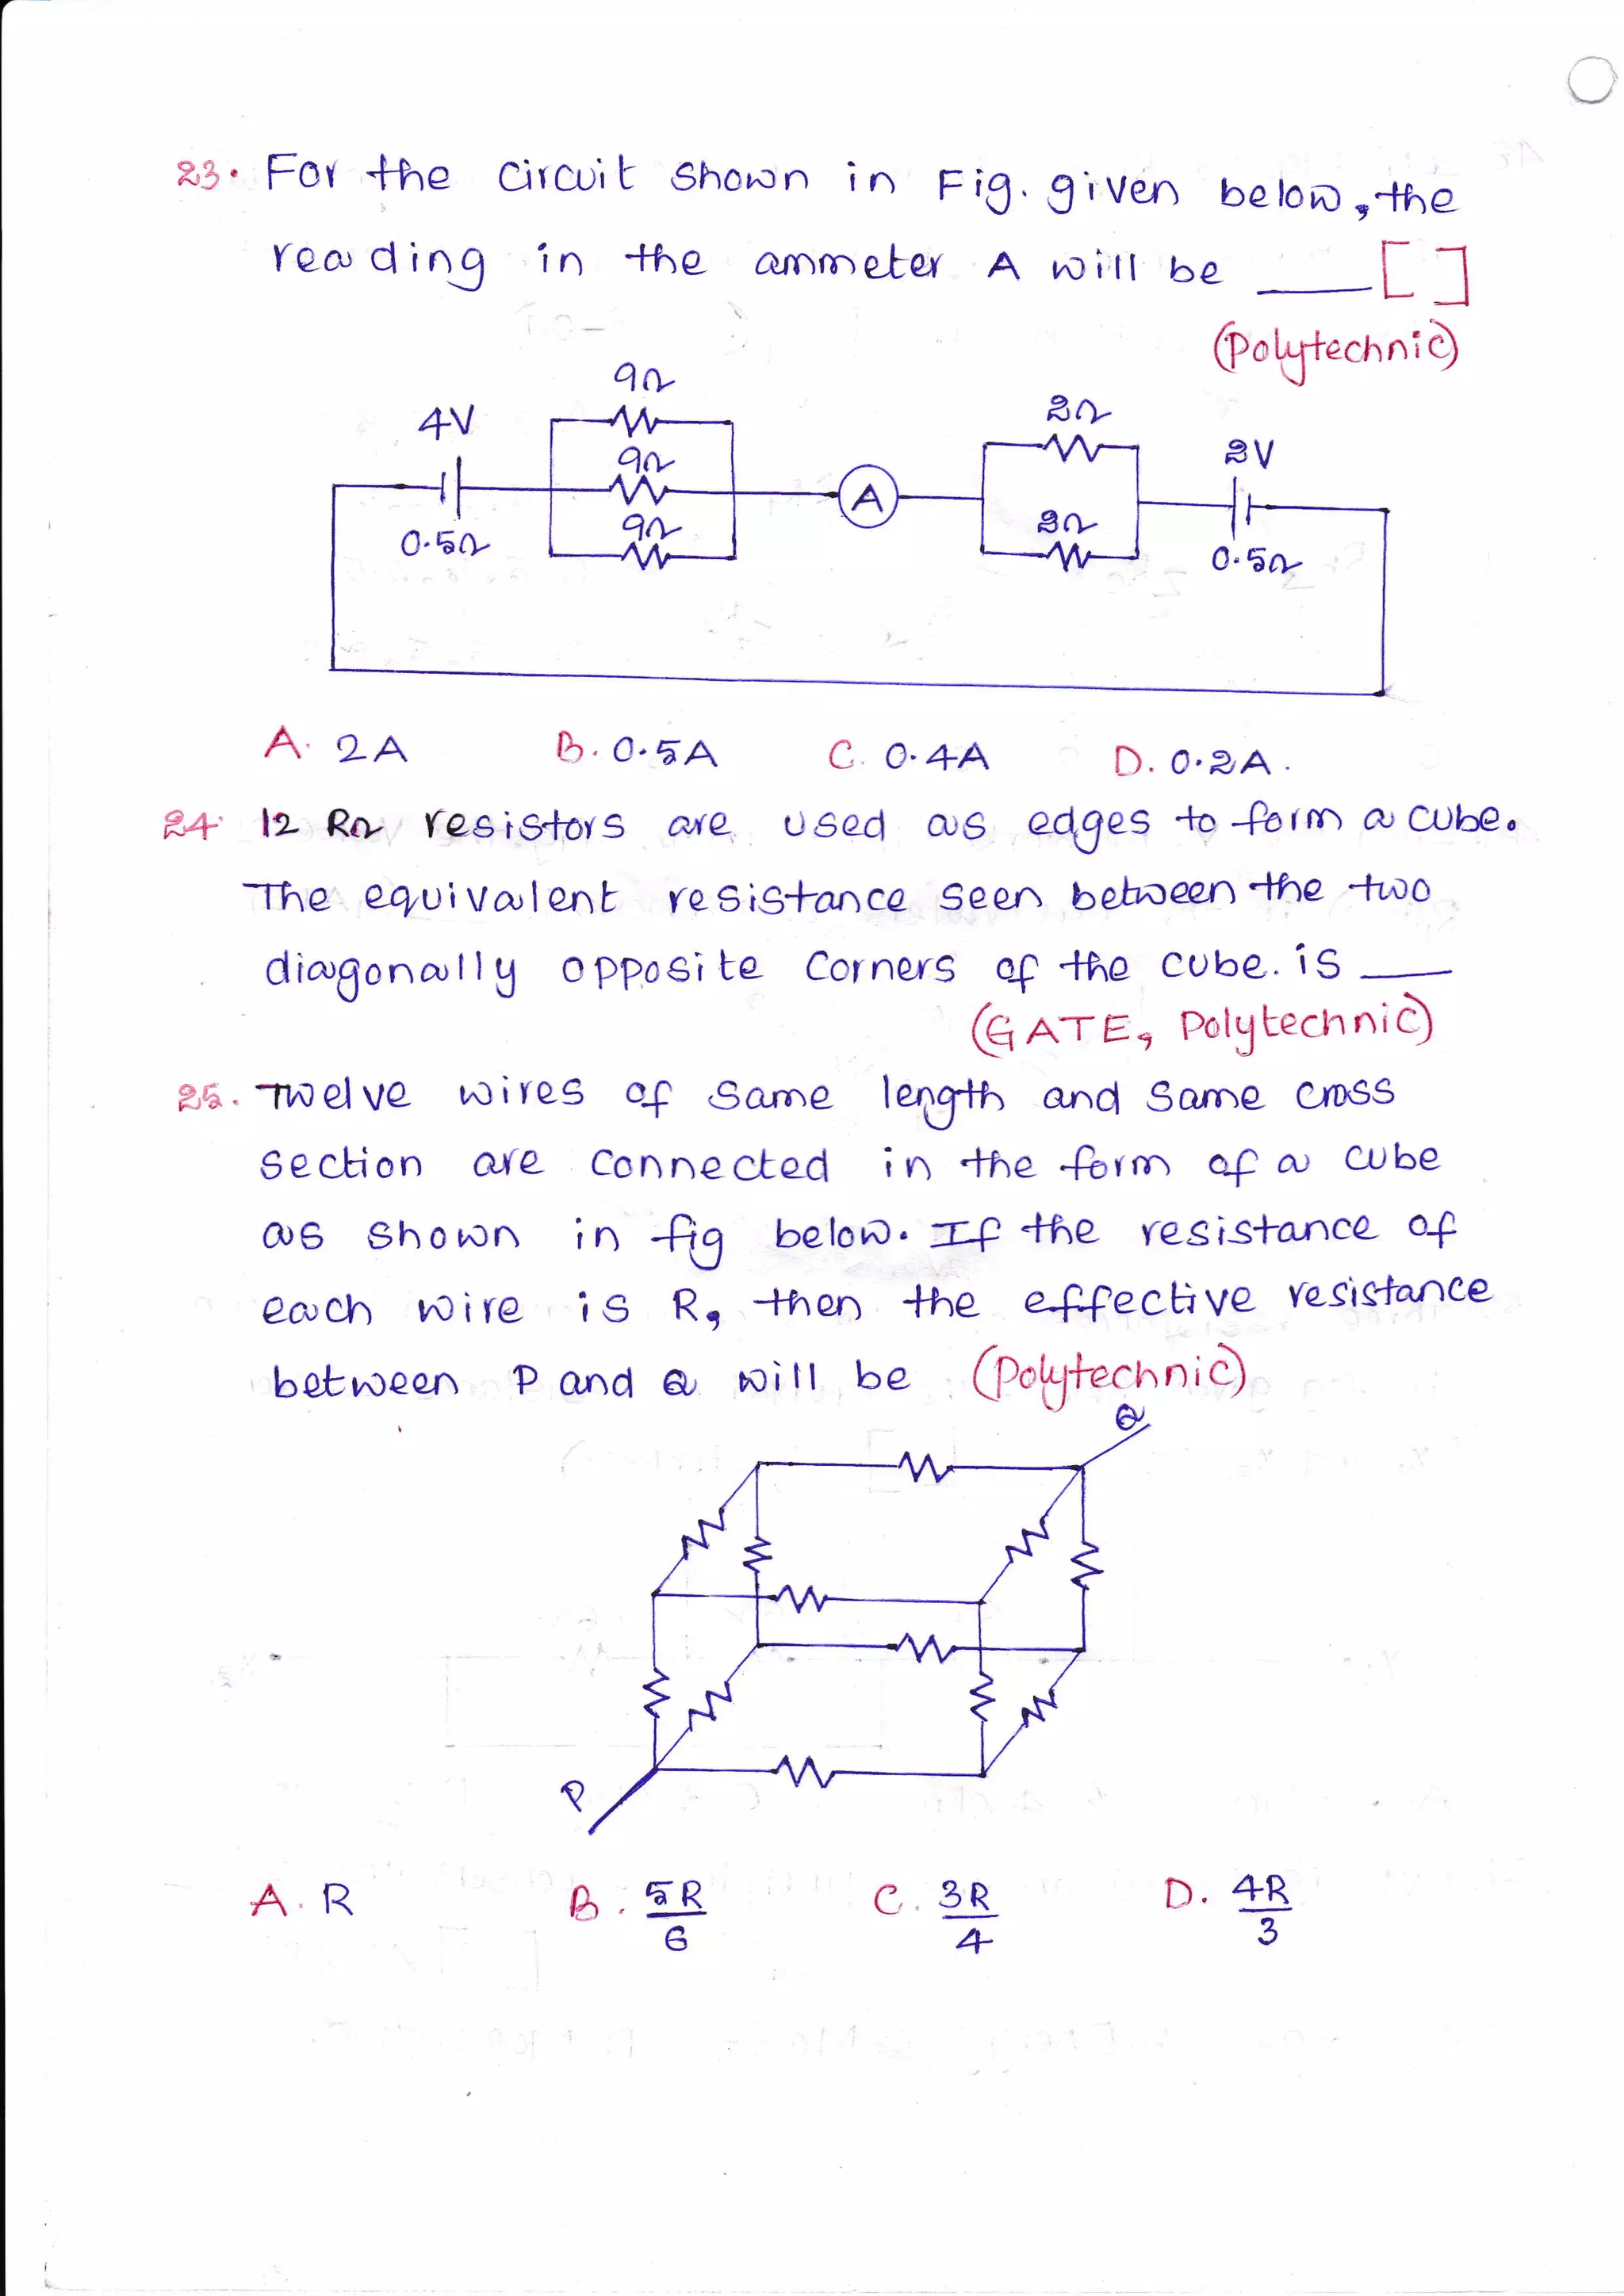 23. For the circuit shown in Fig. given below, the
reading in the ammeter A will be ____ [ ]
(Polytechnic)
9Ω
4V
2Ω
9Ω
2V
A
9Ω
2Ω
0.5Ω
0.5Ω
A. 2A B. 0.5A C. 0.4A D. 0.2A.
24. 12 RΩ resistors are used as edges to form a cube.
The equivalent resistance seen between the two
diagonally opposite Corners of the cube. is ____
(GATE, Polytechnic)
25. Twelve wires of same length and same cross
section are connected in the form of a cube
as shown in fig below. If the resistance of
each wire is R, then the effective resistance
between P and Q will be (Polytechnic)
Q
P
A. R B. 5R/6 C. 3R/4 D. 4R/3